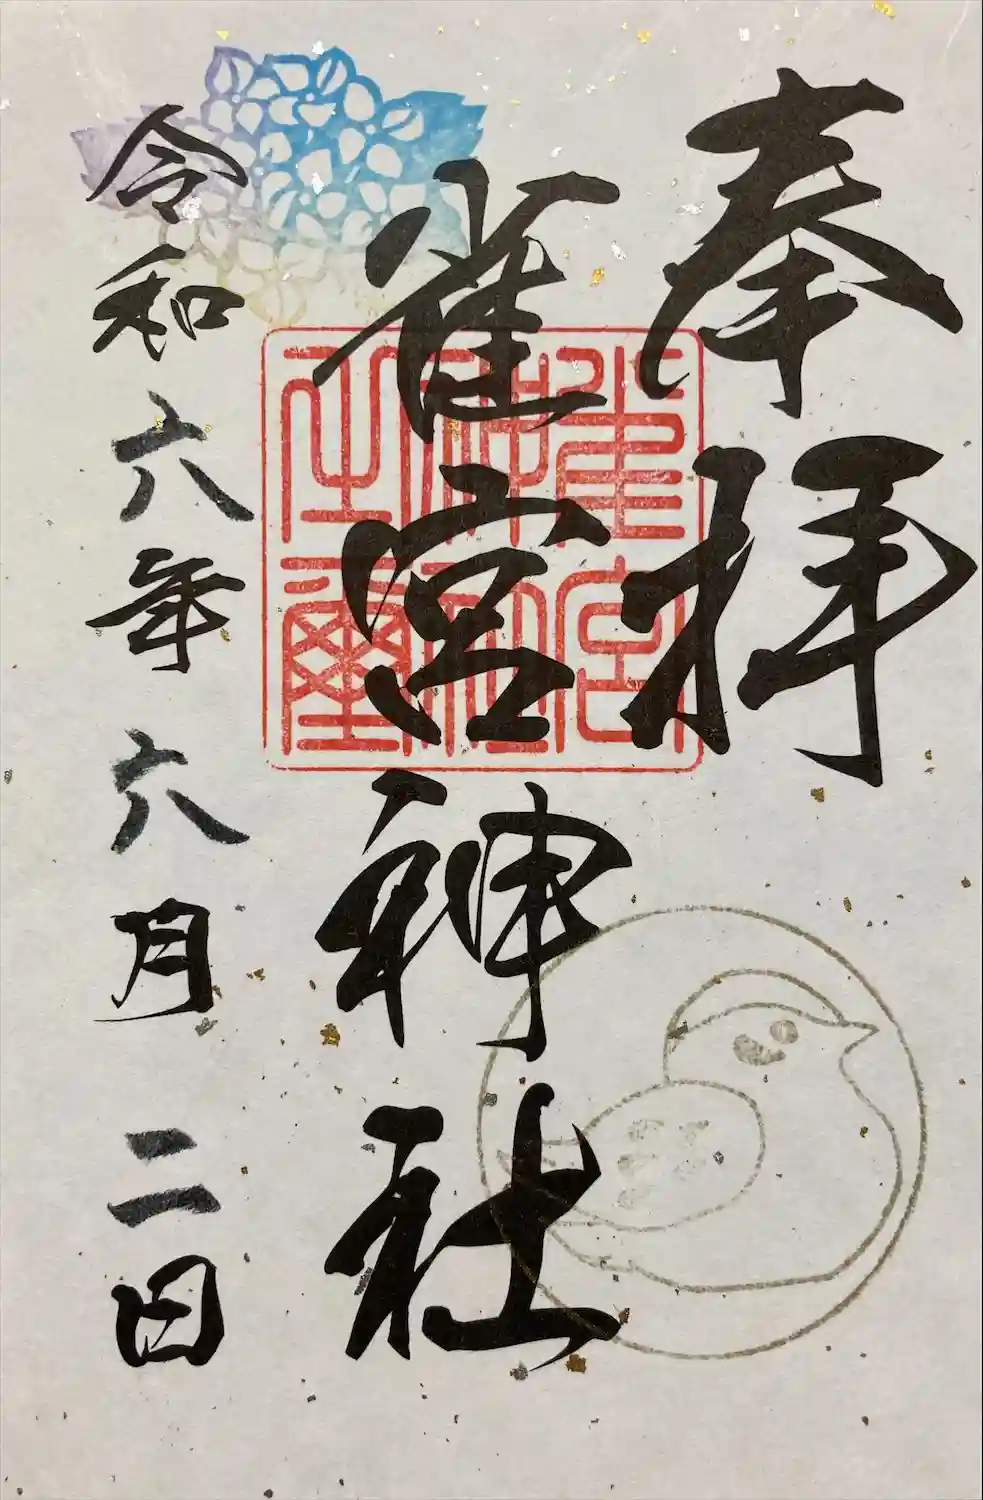 奉拝
雀宮神社
雀宮
神社
之璽
令和六年六月二日